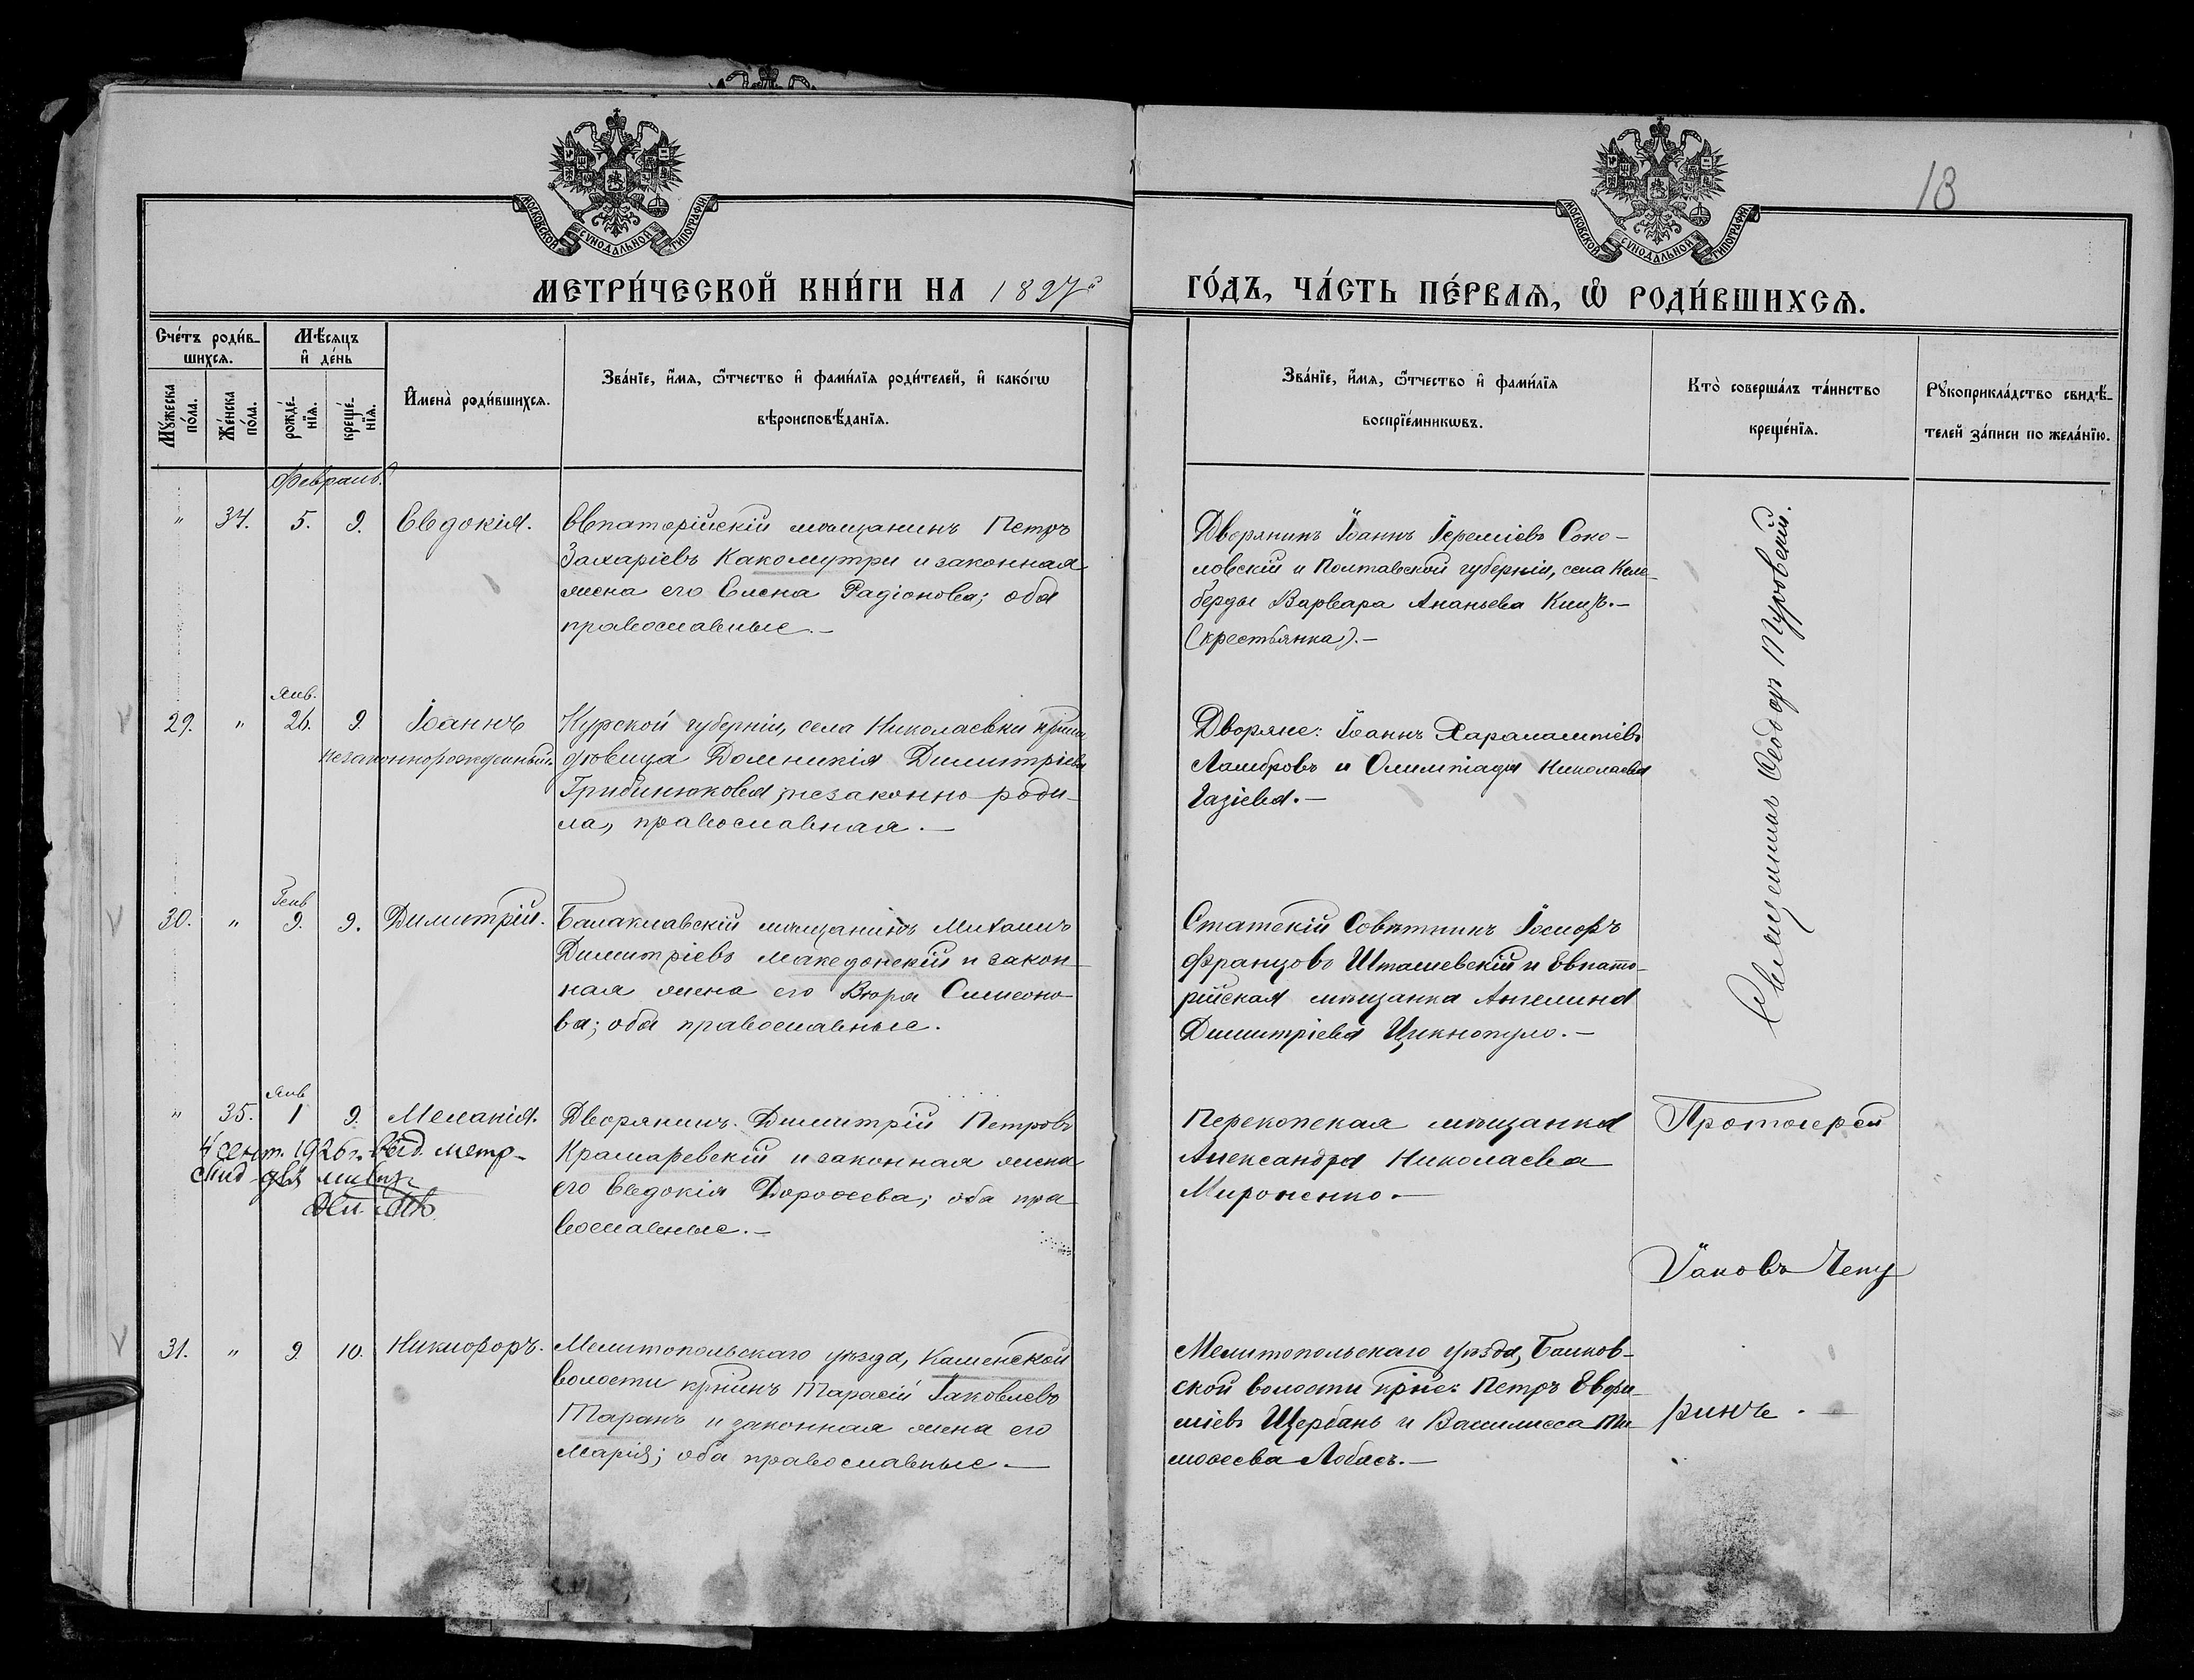 МОСКОВСКОЙ СУНОДАЛЬНОЙ ТИПОГРАФИИ
МОСКОВСКОЙ СУНОДАЛЬНОЙ ТИПОГРАФИИ
18
МЕТРИ́ЧЕСКОЙ КНИ́ГИ НА 1897й
ГО́ДЪ, ЧА́СТЬ ПЕ́РВАѦ, Ѡ РОДИ́ВШИХСѦ.
Сче́тъ роди́в-
шихсѧ.
Мѣ́сѧцъ
и҆ де́нь
Мꙋ́жеска
по́ла.
Же́нска
по́ла.
рожде́-
нїѧ.
креще́-
нїѧ.
И҆мена̀ роди́вшихсѧ.
Зва́нїе, и҆́мѧ, ѻ҆́тчество и҆ фами́лїѧ роди́телей, и҆ како́гѡ
вѣроисповѣ́данїѧ.
Зва́нїе, и҆́мѧ, ѻ҆́тчество и҆ фами́лїѧ
воспрїе́мникѡвъ.
Кто̀ соверша́лъ та́инство
креще́нїѧ.
Рꙋкоприкла́дство свидѣ́-
телей за́писи по жела́нїю.
Февраль
" 34. 5. 9. Евдокія.
Евпаторійскій мѣщанинъ Петръ
Захаріевъ Какомутри и законная
жена его Елена Радіонова; оба
православные.—
Дворянинъ Іоаннъ Іереміевъ Соко-
ловскій и Полтавской губерніи, села Келе-
берды Варвара Ананьева Кищъ.—
(крестьянка).—
Янв.
29. " 26. 9. Іоаннъ
незаконнорожденный.
Курской губерніи, села Николаевки крѣпи
дѣвица Домникія Димитріева
Грибинюкова, незаконно роди-
ла, православная.—
Дворяне: Іоаннъ Харалампіевъ
Ламбровъ и Олимпіада Николаева
Газіева.—
Генв
30. " 9. 9. Димитрій.
Балаклавскій мѣщанинъ Михаилъ
Димитріевъ Македонскій и закон-
ная жена его Вѣра Симеоно-
ва; оба православные.
Статскій Совѣтникъ Іосифъ
Францовъ Шташевскій и Евпато-
рійская мѣщанка Ангелина
Димитріева Цикнопуло.—
Священникъ Ѳеодоръ Туровскій.
Янв
" 35. 1 9. Меланія.
4 сент. 1926 г. выд. метр-
свид для
Дворянинъ Димитрій Петровъ
Крамаревскій и законная жена
его Евдокія Дороѳеева; оба пра-
вославные.—
Перекопская мѣщанка
Александра Николаева
Мироненко.—
Протоіерей
Іаковъ Чепу
ринъ.—
31. " 9. 10. Никифоръ.
Мелитопольскаго уѣзда, Каменской
волости кр҃нинъ Тарасій Іаковлевъ
Таранъ и законная жена его
Марія; оба православные.—
Мелитопольскаго уѣзда, Балков-
ской волости кр҃не: Петръ Евфи-
міевъ Щербань и Василисса Ти-
моѳеева Лобасъ.—